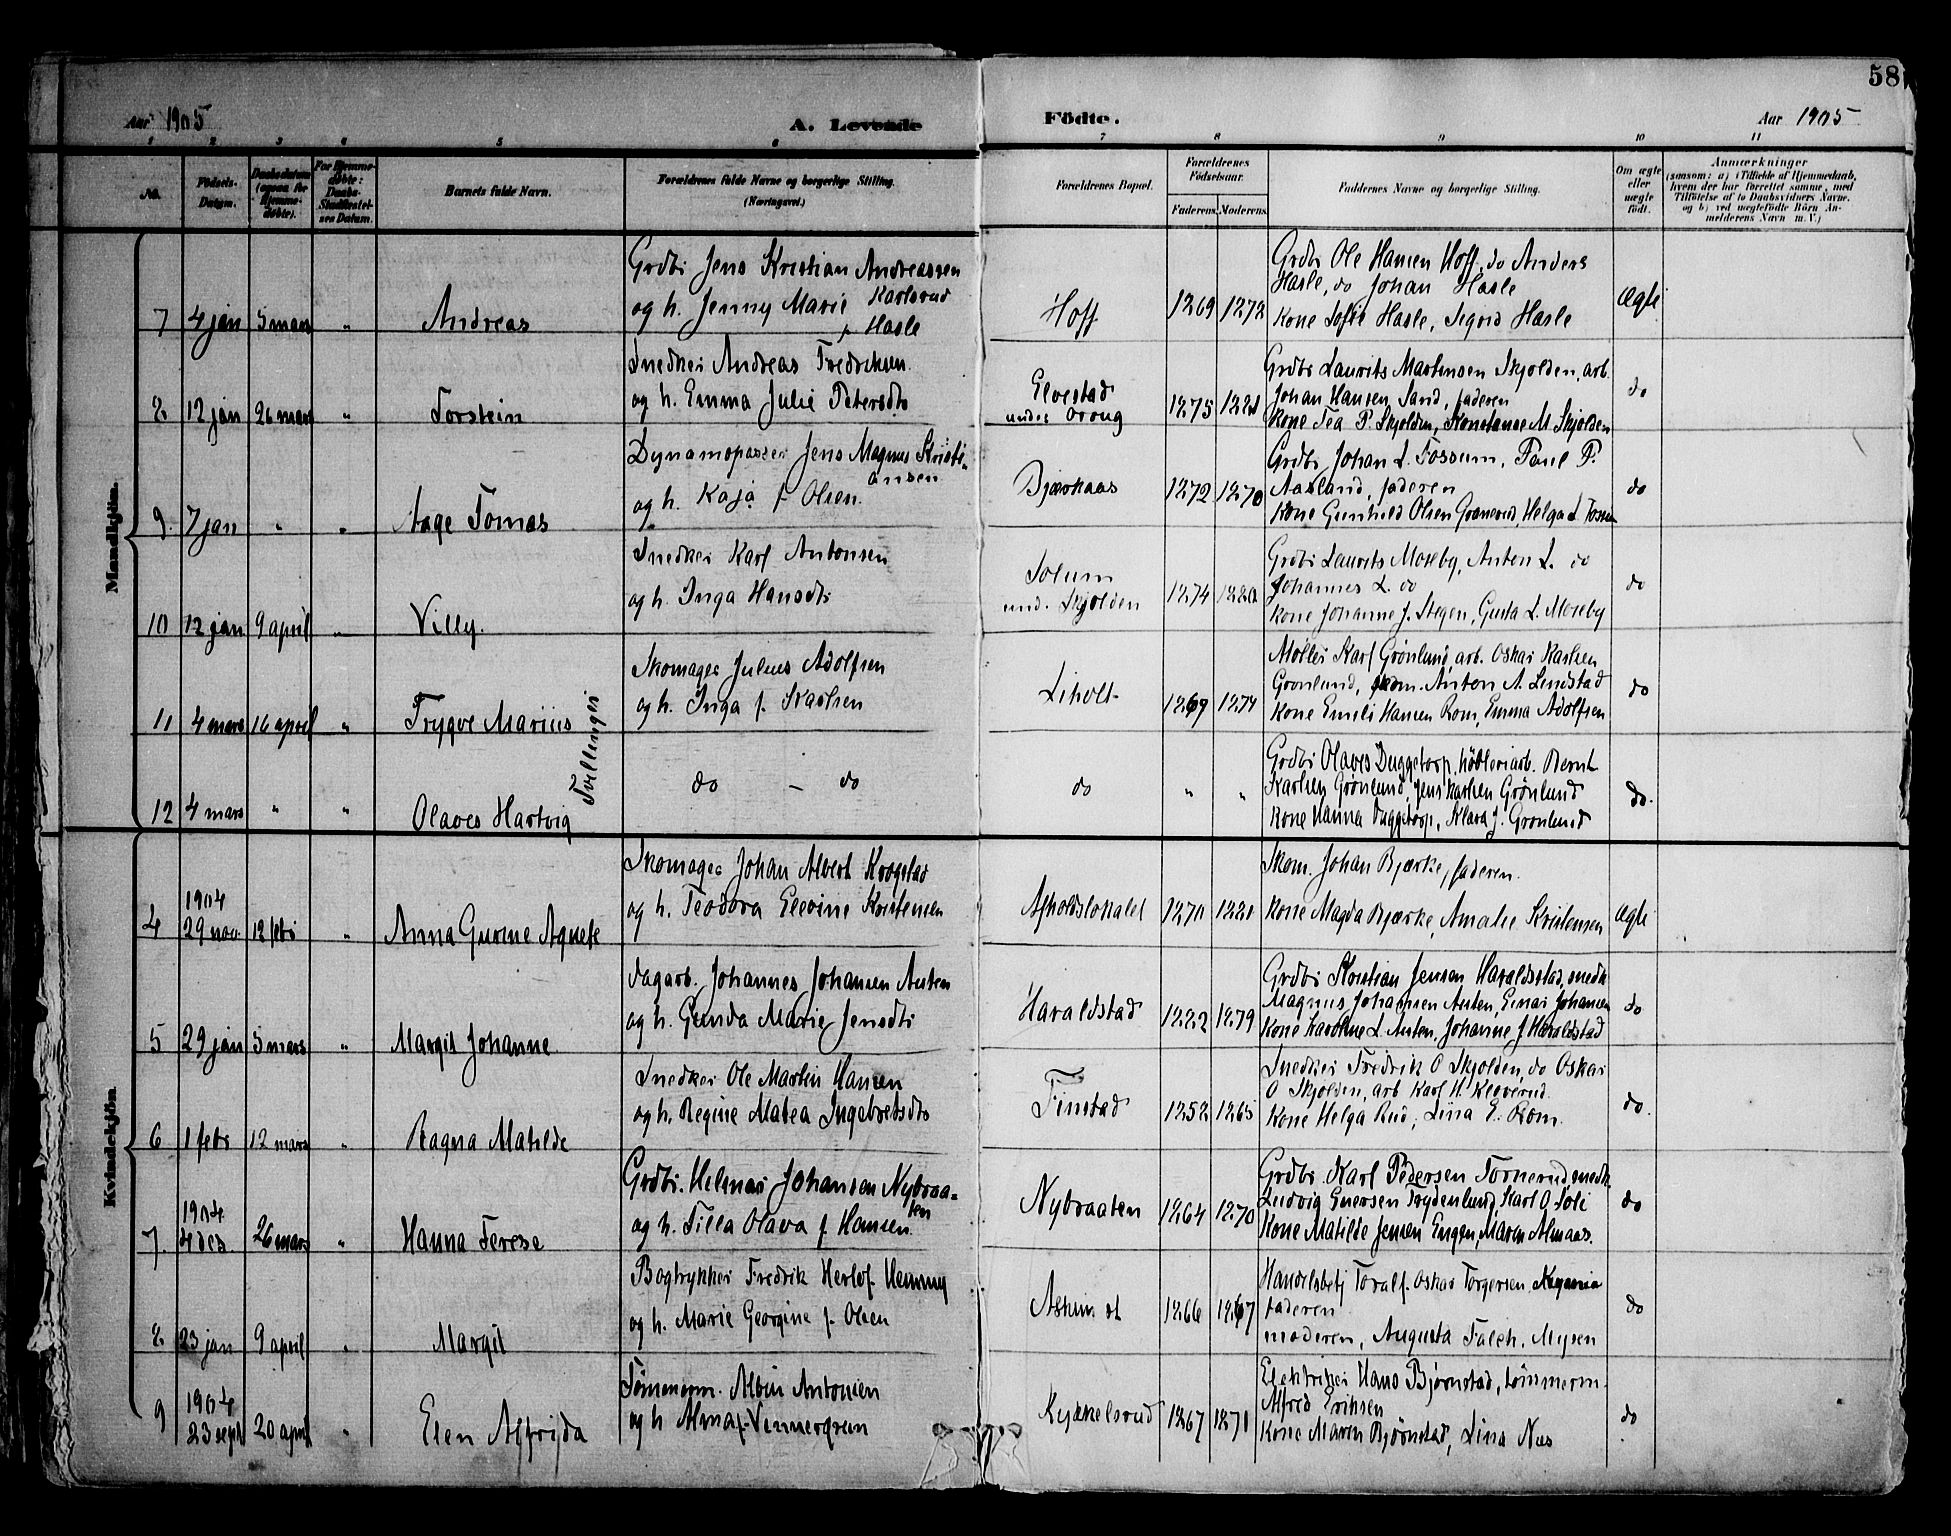 58
Aar 1905
A. Levende
Födte.
Aar 1905
1 2 3 4 5 6 7 8 9 10 11
No.
Födsels-
Datum.
Daabsdatum
(ogsaa for
Hjemme-
døbte).
For Hjemme-
døbte:
Daabs-
Stadfæstel-
ses Datum.
Barnets fulde Navn.
Forældrenes fulde Navne og borgerlige Stilling.
(Næringsvei.)
Forældrenes Bopæl.
Forældrenes
Födselsaar.
Faderens. Moderens.
Faddernes Navne og borgerlige Stilling.
Om ægte
eller
uægte
født.
Anmærkninger
(saasom: a) i Tilfælde af Hjemmedaab,
hvem der har forrettet samme, med
Tilföielse af to Daabsvidners Navne.
og b) ved uægtefödte Börn An-
melderens Navn m. V.)
Mandkjön.
7 4 jan 5 mars " Andreas
Grdbr Jens Kristian Andreassen
og h. Jenny Marie Karlsrud
f Hasle
Hoff
1869 1872
Grdbr Ole Hansen Hoff, do Anders
Hasle, do Johan Hasle
Kone Sofie Hasle, Sigrid Hasle
Ægte
8. 12 jan 26 mars " Torstein
Snedker Andreas Fredriksen
og h. Emma Julie Petersdtr
Elvestad
under Oraug
1875 1881
Grdbr Laurits Martensen Skjolden, arb.
Johan Hansen Sand, faderen
Kone Tea P. Skjolden, Konstanse M. Skjolden
do
9. 7 jan " " Aage Tomas
Dynamopasser Jens Magnus Kristi-
ansen
og h. Kaja f. Olsen.
Bjærkaas
1872 1870
Grdbr Johan L. Fossum, Paul P.
Aasland, faderen
Kone Gunhild Olsen Granerud, Helga L Fossum
do
10 12 jan 9 april " Villy.
Snedker Karl Antonsen
og h. Inga Hansdtr
Solum
und. Skjolden
1874 1880
Grdbr Laurits Moseby, Anton L. do
Johannes L. do
Kone Johanne J. Stegen, Gusta L. Moseby
do
11 4 mars 16 april " Trygve Marius
Tvillinger
Skomager Julius Adolfsen
og h. Inga f. Karlsen
Liholt
1869 1874
Møller Karl Grönlund, arb. Oskar Karlsen
Grönlund, skom. Anton A. Lundstad
Kone Emili Hansen Rom, Emma Adolfsen
do
12 4 mars " " Olaves Hartvig
do — do
do
" "
Grdbr Olaves Duggetorp, hövleriarb. Bernt
Karlsen Grönlund, Jens Karlsen Grönlund
Kone Hanna Duggetorp, Klara J. Grönlund
do.
Kvindekjön
4 1904
29 nov 12 febr " Anna Gurine Agnete
Skomager Johan Albert Krogstad
og h. Teodora Elevine Kristensen
Afholdslokalet
1870 1881
Skom. Johan Bjærke, faderen.
Kone Magda Bjærke, Amalie Kristensen
Ægte
5 29 jan 5 mars " Margit Johanne
Dagarb. Johannes Johansen Auten
og h. Gunda Marie Jensdtr
Haraldstad
1882 1879
Grdbr Kristian Jensen Haraldstad, snedk
Magnus Johansen Auten, Einar Johansen
Kone Karoline L. Auten, Johanne J Haraldstad
do
6 1 febr 12 mars " Ragna Matilde
Snedker Ole Martin Hansen
og h. Regine Matea Ingebretsdtr
Finstad
1852 1865
Snedker Fredrik O Skjolden, do Oskar
O Skjolden, arb Karl H. Kleverud
Kone Helga Rud, Lina E. Rom.
do.
7. 1904
4 des. 26 mars " Hanna Terese
Grdbr. Helmer Johansen Nybraa-
ten
og h. Tilla Olava f. Hansen.
Nybraaten
1864 1870
Grdbr. Karl Pedersen Tornerud, snedk
Ludvig Guersen Frydenlund, Karl O. Soli
Kone Matilde Jensen Engen, Maren Almaas.
do
8. 23 jan 9 april " Margit
Bogtrykker Fredrik Herlof Henning
og h. Marie Georgine f. Olsen
Askim st
1866 1867
Handelsbetj Toralf Oskar Torgersen,
faderen
moderen, Augusta Falch, Mysen
do
9 1904
23 sept 20 april " Elen Alfrida
Tömmerm. Albin Antonien
og h Alma f. Vennergren
Kykkelsrud
1867 1871
Elektriker Hans Björnstad, tømmerm.
Alfred Eriksen
Kone Maren Bjørnstad, Lina Næs
do